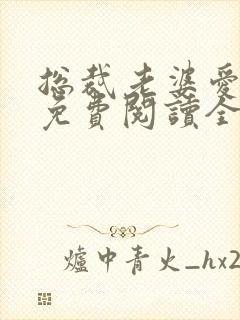 总裁老婆爱
免費閱讀全
爐中青火_hx2